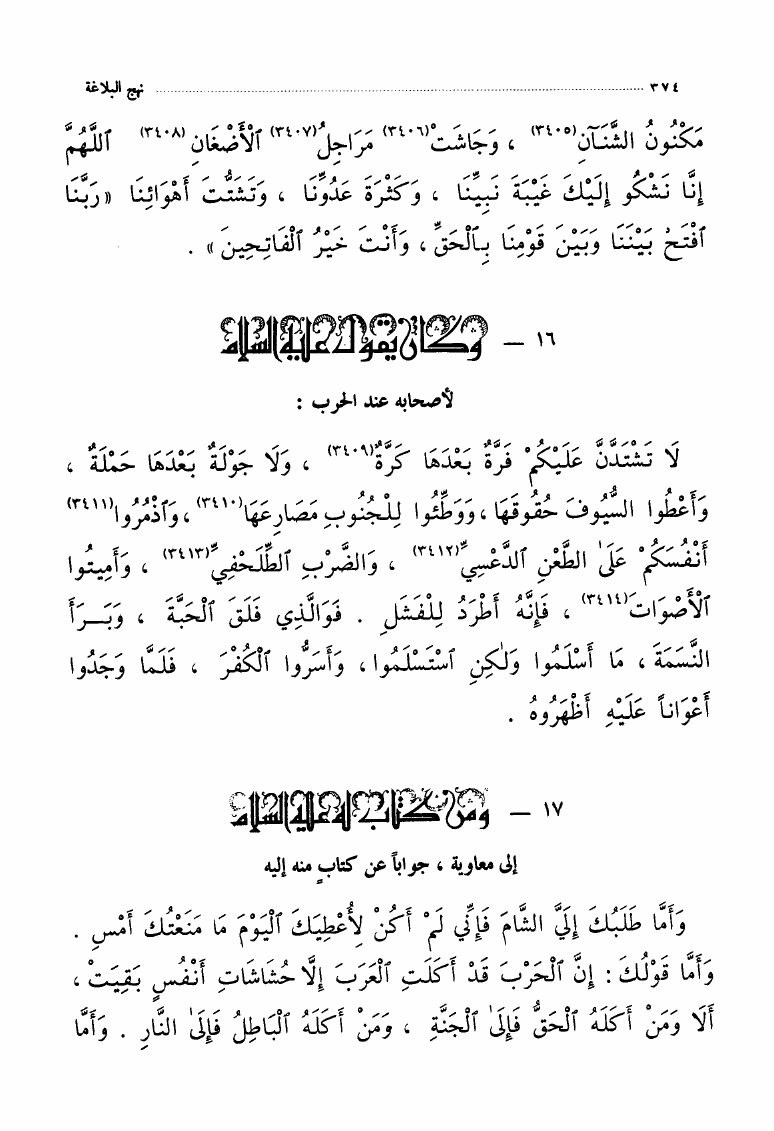 ٣٧٤ ........ نهج البلاغة
مَكْنُونُ الشَّنَآنِ(٣٤٠٥) ، وَجَاشَتْ(٣٤٠٦) مَرَاجِلُ(٣٤٠٧) ٱلْأَضْغَانِ(٣٤٠٨) ٱللَّهُمَّ
إِنَّا نَشْكُو إِلَيْكَ غَيْبَةَ نَبِيِّنَا ، وَكَثْرَةَ عَدُوِّنَا ، وَتَشَتُّتَ أَهْوَائِنَا « رَبَّنَا
ٱفْتَحْ بَيْنَنَا وَبَيْنَ قَوْمِنَا بِٱلْحَقِّ ، وَأَنْتَ خَيْرُ ٱلْفَاتِحِينَ » .
١٦ – وكان يقول عليه السلام
لأصحابه عند الحرب :
لَا تَشْتَدَّنَّ عَلَيْكُمْ فَرَّةٌ بَعْدَهَا كَرَّةٌ(٣٤٠٩) ، وَلَا جَوْلَةٌ بَعْدَهَا حَمْلَةٌ ،
وَأَعْطُوا السُّيُوفَ حُقُوقَهَا ، وَوَطِّئُوا لِلْجُنُوبِ مَصَارِعَهَا(٣٤١٠) ، وَٱذْمُرُوا(٣٤١١)
أَنْفُسَكُمْ عَلَىٰ الطَّعْنِ ٱلدَّعْسِيِّ(٣٤١٢) ، وَالضَّرْبِ ٱلطِّلَحْفِيِّ(٣٤١٣) ، وَأَمِيتُوا
ٱلْأَصْوَاتَ(٣٤١٤) ، فَإِنَّهُ أَطْرَدُ لِلْفَشَلِ . فَوَالَّذِي فَلَقَ ٱلْحَبَّةَ ، وَبَرَأَ
النَّسَمَةَ ، مَا أَسْلَمُوا وَلٰكِنِ ٱسْتَسْلَمُوا ، وَأَسَرُّوا ٱلْكُفْرَ ، فَلَمَّا وَجَدُوا
أَعْوَاناً عَلَيْهِ أَظْهَرُوهُ .
١٧ – ومن كتاب له عليه السلام
إلى معاوية ، جواباً عن كتابٍ منه إليه
وَأَمَّا طَلَبُكَ إِلَيَّ الشَّامَ فَإِنِّي لَمْ أَكُنْ لِأُعْطِيَكَ ٱلْيَوْمَ مَا مَنَعْتُكَ أَمْسِ .
وَأَمَّا قَوْلُكَ : إِنَّ ٱلْحَرْبَ قَدْ أَكَلَتِ ٱلْعَرَبَ إِلَّا حُشَاشَاتِ أَنْفُسٍ بَقِيَتْ ،
أَلَا وَمَنْ أَكَلَهُ ٱلْحَقُّ فَإِلَىٰ ٱلْجَنَّةِ ، وَمَنْ أَكَلَهُ ٱلْبَاطِلُ فَإِلَىٰ النَّارِ . وَأَمَّا